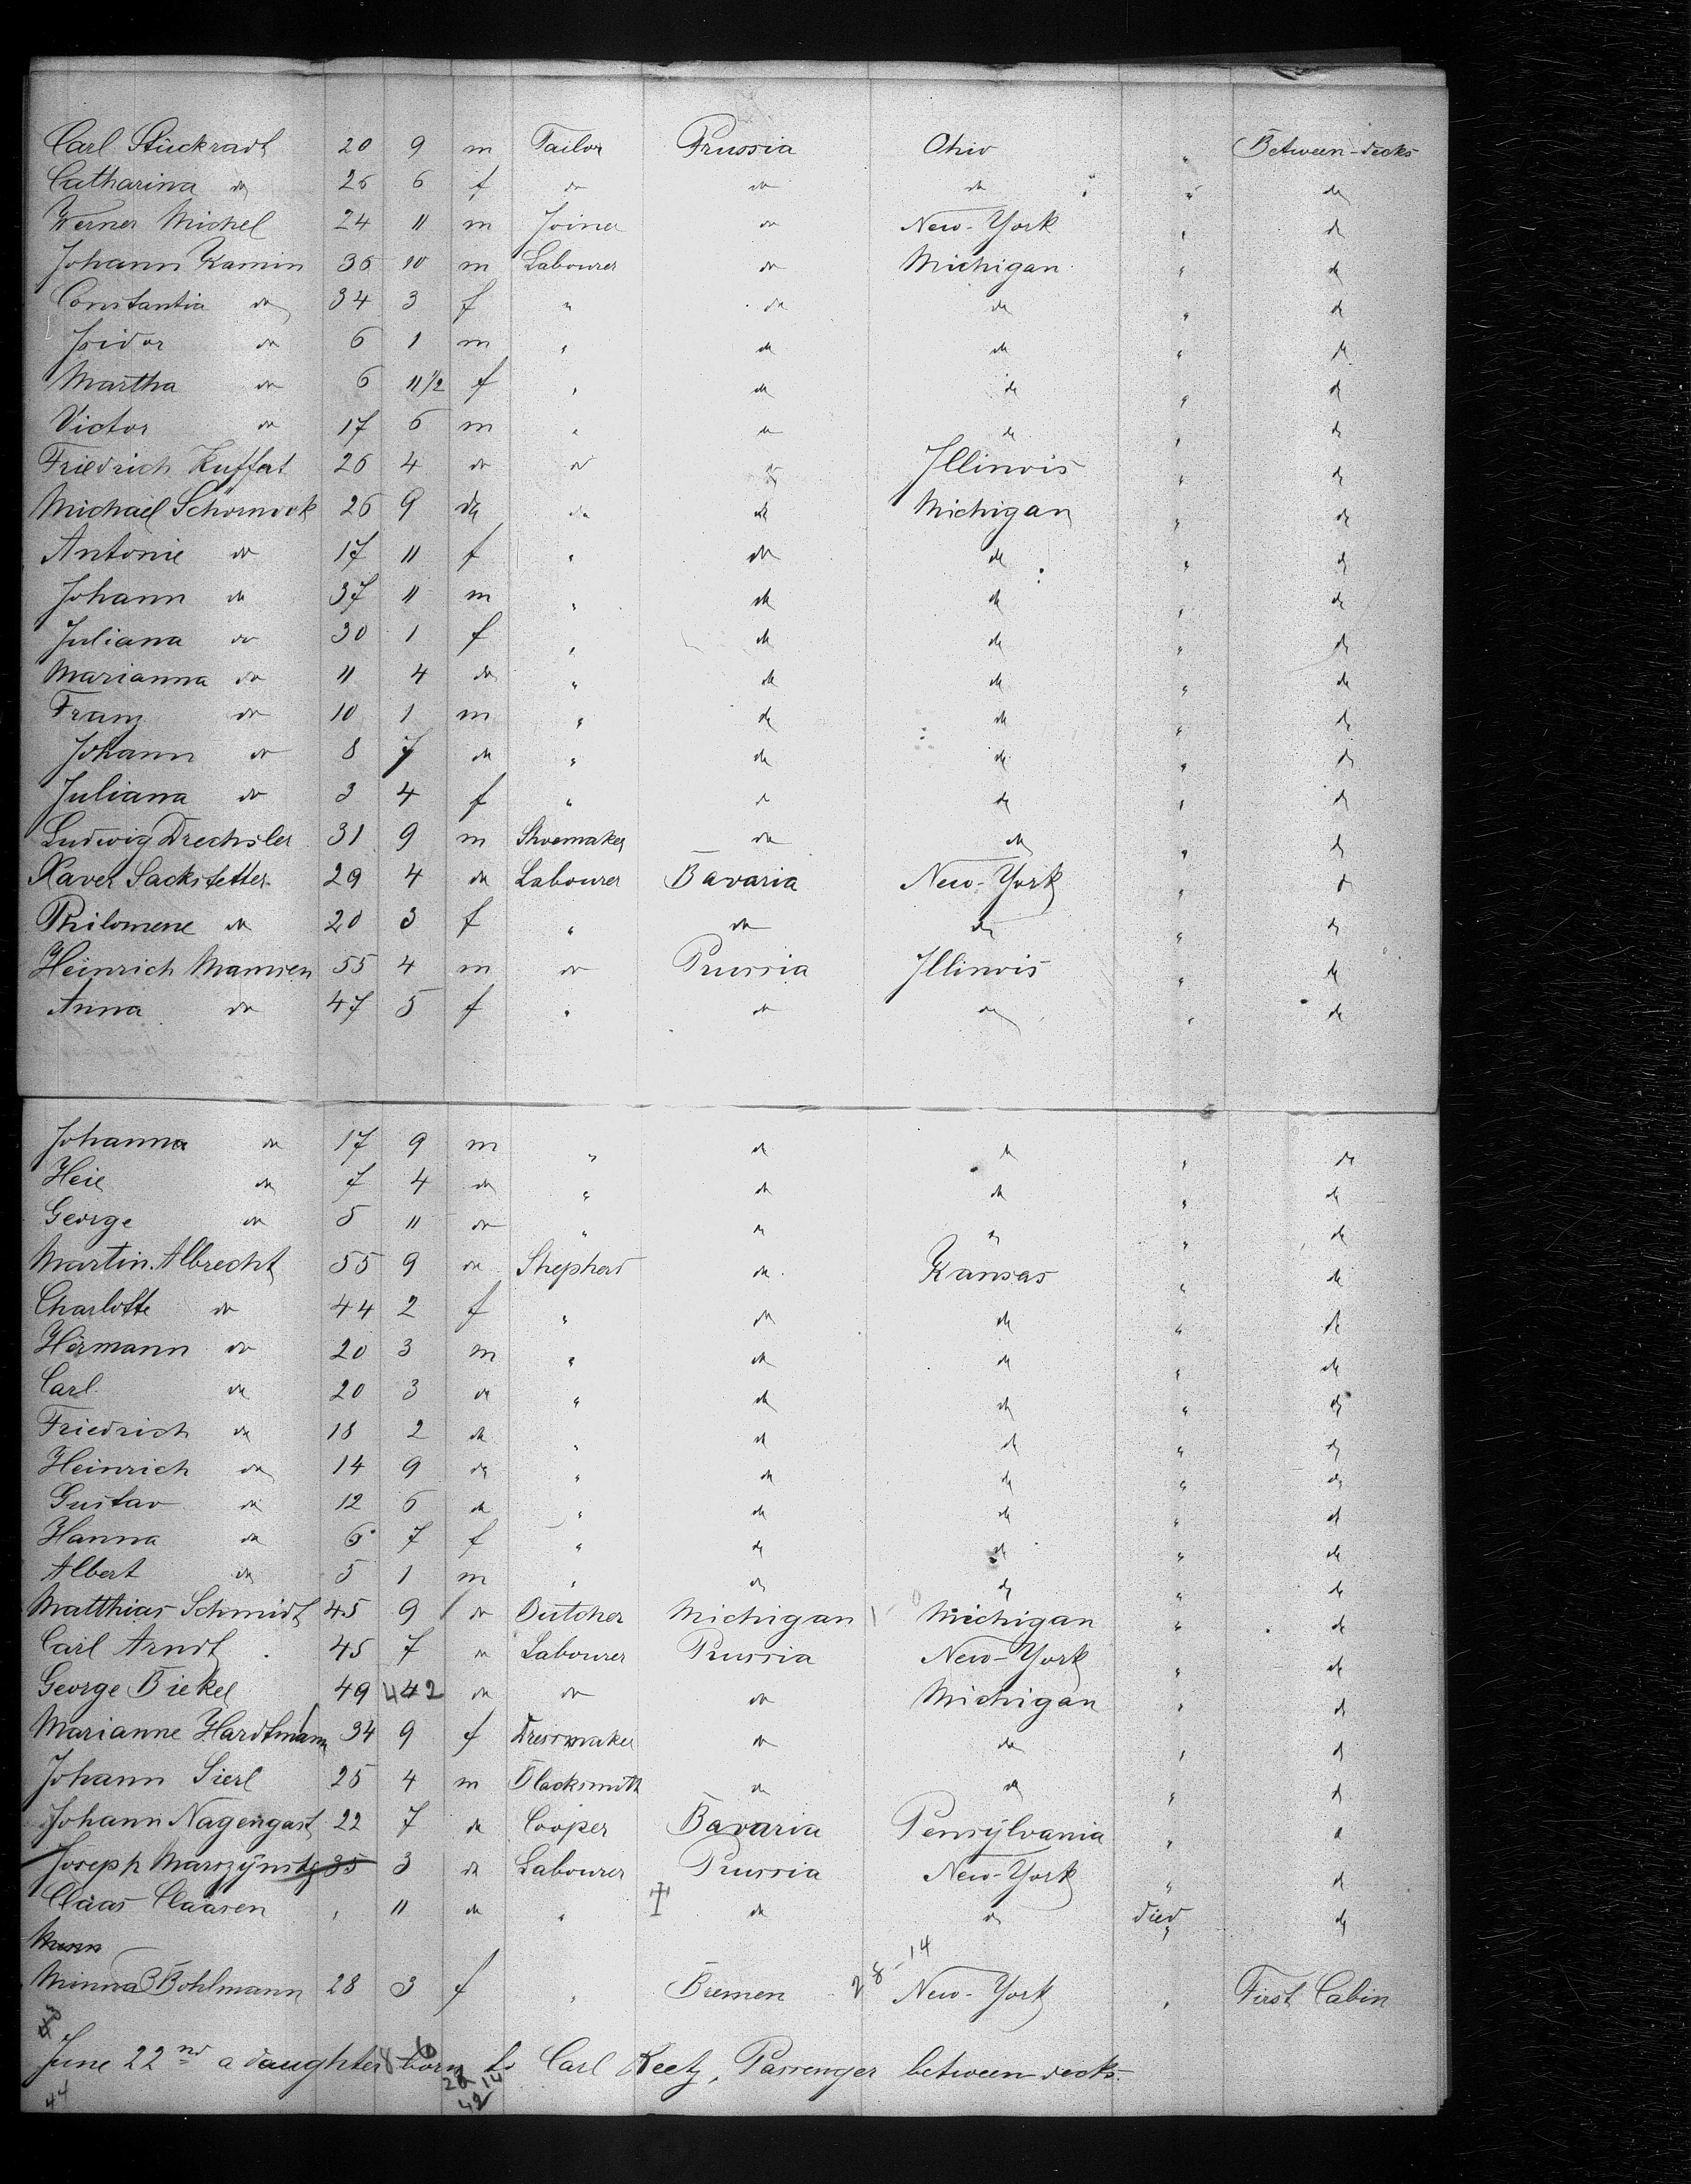 Carl Stückradt 20 9 m Tailor Prussia Ohio " Between-decks
Catharina do 26 6 f do do do " do
Werner Michel 24 11 m Joiner do New-York " do
Johann Kamin 36 10 m Labourer do Michigan " do
Constantia do 34 3 f " do do " do
Isidor do 6 1 m " do do " do
Martha do 6 11 1/2 f " do do " do
Victor do 17 6 m " do do " do
Friedrich Kuffert 26 4 do do do Illinois " do
Michael Schornock 26 9 do do do Michigan " do
Antonie do 17 11 f " do do " do
Johann do 37 11 m " do do " do
Juliana do 30 1 f " do do " do
Marianna do 11 4 do " do do " do
Franz do 10 1 m " do do " do
Johann do 8 7 do " do do " do
Juliana do 3 4 f " do do " do
Ludwig Drechsler 31 9 m Shoemaker do do " do
Xaver Sackstetter 29 4 do Labourer Bavaria New-York " do
Philomene do 20 3 f " do do " do
Heinrich Mamsen 55 4 m do Prussia Illinois " do
Anna do 47 5 f " do do " do
Johanna do 17 9 m " do do " do
Heie do 7 4 do " do do " do
George do 5 11 do " do do " do
Martin Albrecht 55 9 do Shepherd do Kansas " do
Charlotte do 44 2 f " do do " do
Hermann do 20 3 m " do do " do
Carl do 20 3 do " do do " do
Friedrich do 18 2 do " do do " do
Heinrich do 14 9 do " do do " do
Gustav do 12 6 do " do do " do
Hanna do 6 7 f " do do " do
Albert do 5 1 m " do do " do
Matthias Schmidt 45 9 do Butcher Michigan Michigan " do
Carl Arndt 45 7 do Labourer Prussia New-York " do
George Biekel 49 442 do do do Michigan " do
Marianne Hardtmann 34 9 f Dressmaker do do " do
Johann Sierl 25 4 m Blacksmith do do " do
Johann Nagengast 22 7 do Cooper Bavaria Pensylvania " do
Joseph 35 3 do Labourer Prussia New-York " do
Claas Claasen " 11 do " † do do died do
Minna Bohlmann 28 3 f " Bremen 28-14 New-York " First Cabin
June 22nd a daughter born to Carl Keetz, Passenger between decks.
28 14
44 42